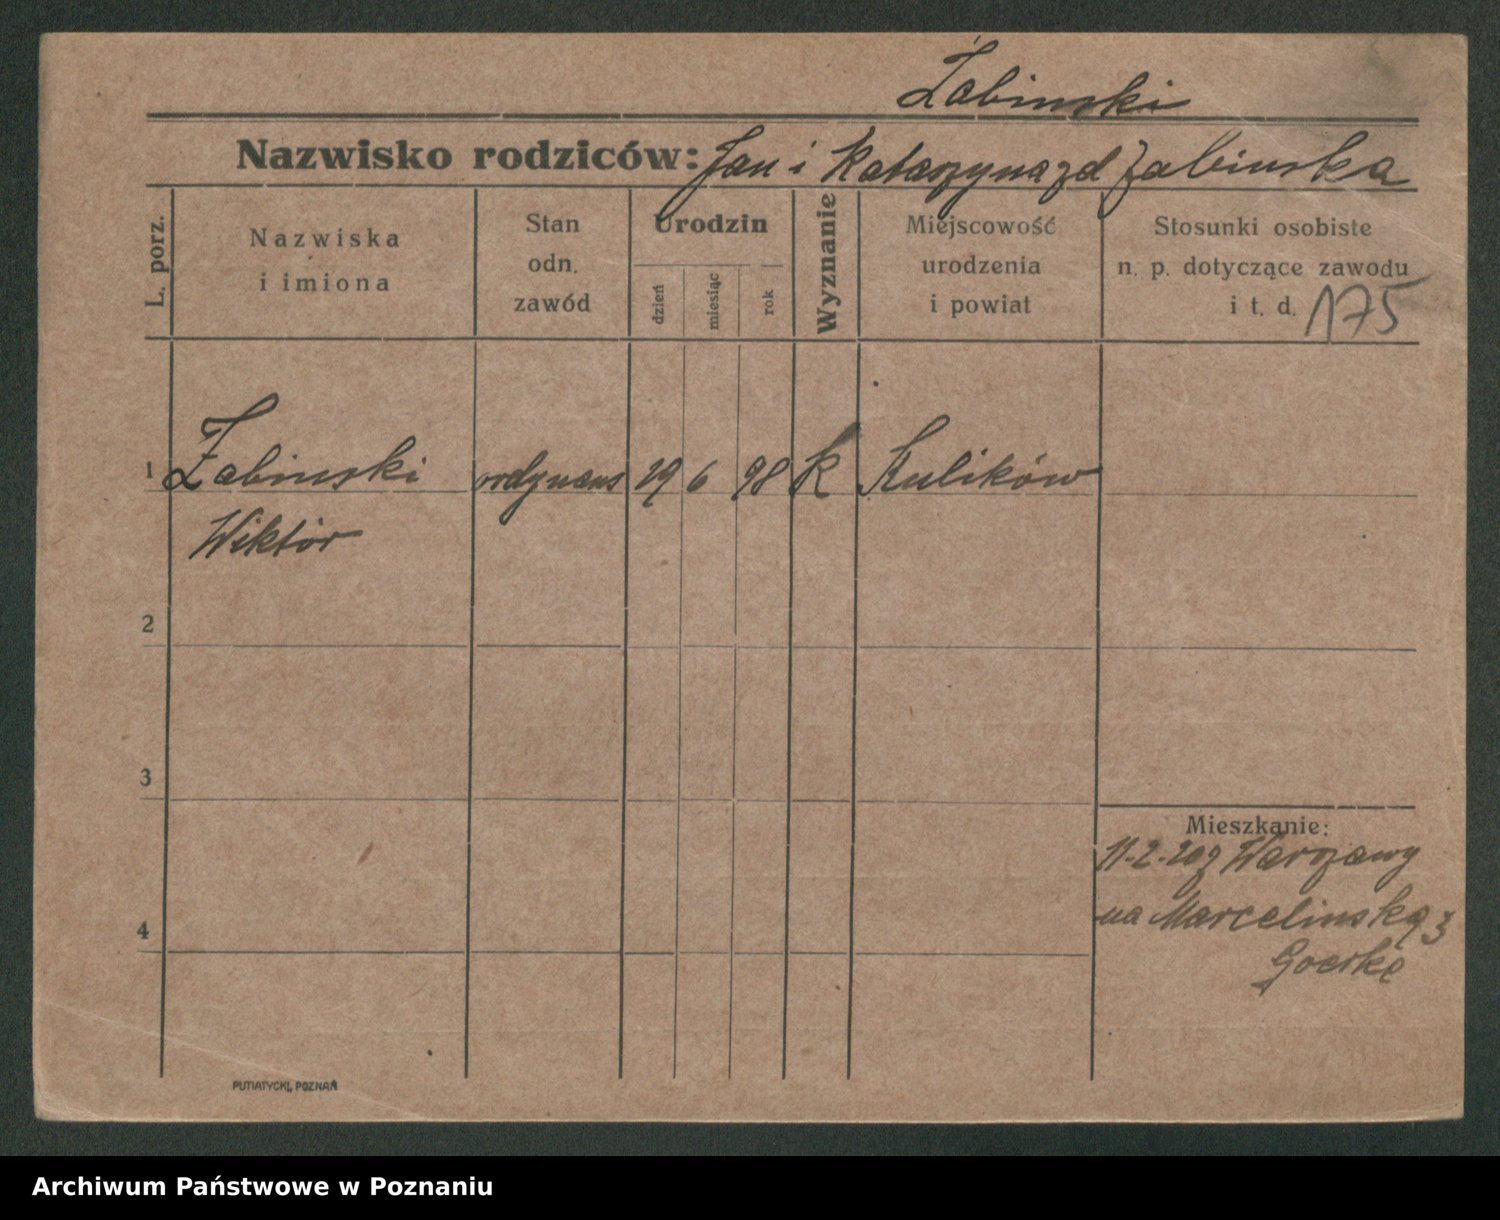 Żabinski
Nazwisko rodziców: Jan i Katarzyna zd Zabinska
L. porz.
Nazwiska
i imiona
Stan
odn.
zawód
Urodzin
dzień
miesiąc
rok
Wyznanie
Miejscowość
urodzenia
i powiat
Stosunki osobiste
n. p. dotyczące zawodu
i t. d. 175
1 Żabinski ordynans 19 6 98 K Kulików
Wiktór
2
3
Mieszkanie:
11-2-20 z Warszawy
na Marcelinską 3
4
PUTIATYCKI, POZNAŃ
Archiwum Państwowe w Poznaniu